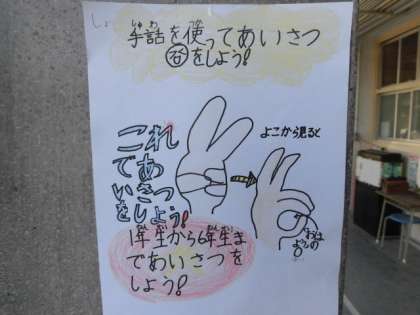 手話を使ってあいさつ
をしよう!
しゅわ
これ
であ
いさつ
をしよう!
よこから見ると
1年生から6年生ま
であいさつを
しよう!